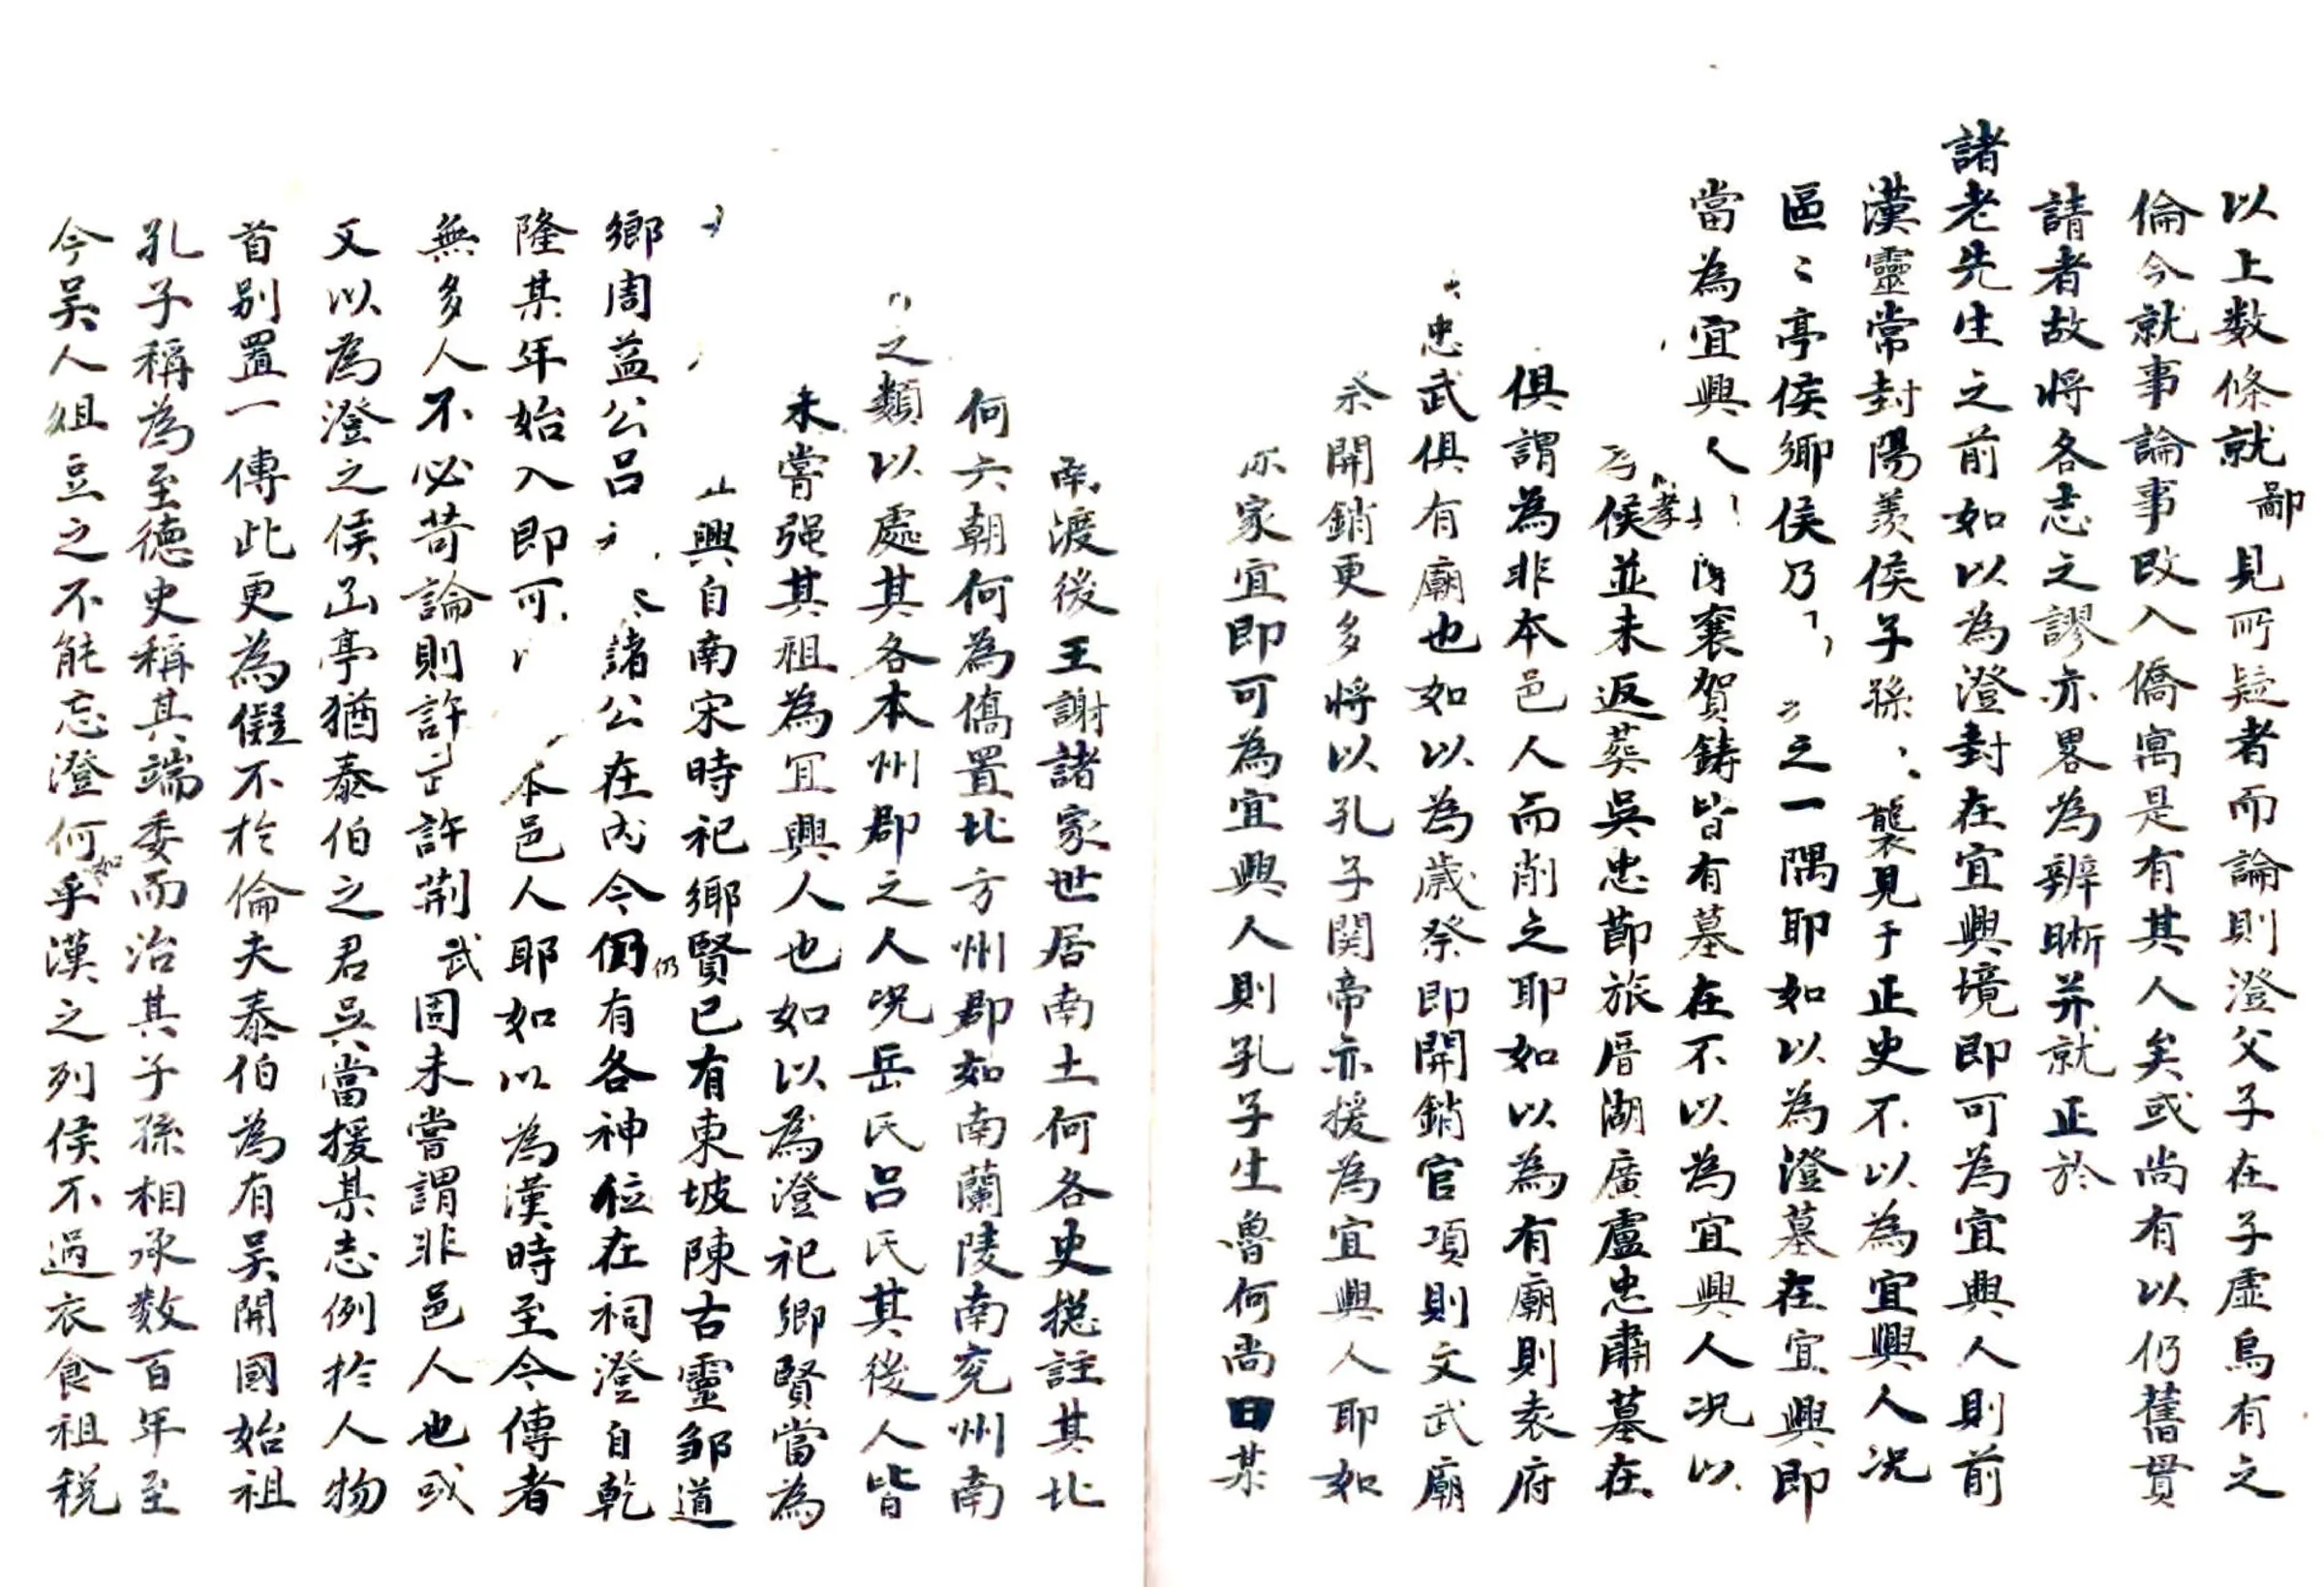 以上数條就鄙見所疑者而論則澄父子在子虛烏有之
倫今就事論事改入僑寓是有其人矣或尚有以仍舊貫
請者故將各志之謬亦畧為辨晰并就正於
諸老先生之前如以為澄封在宜興境即可為宜興人則前
漢靈常封陽羨侯子孫襲見于正史不以為宜興人况
區〻亭侯鄉侯乃之一隅耶如以為澄墓在宜興即
當為宜興人孝襄賀鑄皆有墓在不以為宜興人况以
侯並未返葬吳忠節旅厝湖廣盧忠肅墓在
俱謂為非本邑人而削之耶如以為有廟則袁府
忠武俱有廟也如以為歲祭即開銷官項則文武廟
祭開銷更多將以孔子関帝亦援為宜興人耶如
家宜即可為宜興人則孔子生魯何尚曰某
南渡後王謝諸家世居南土何各史摠註其北
何六朝何為僑置北方州郡如南蘭陵南兖州南
之類以處其各本州郡之人况岳氏吕氏其後人皆
未嘗强其祖為宜興人也如以為澄祀鄉賢當為
興自南宋時祀鄉賢已有東坡陳古靈邹道
鄉周益公吕諸公在内今仍有各神位在祠澄自乾
隆某年始入即可本邑人耶如以為漢時至今傳者
無多人不必苛論則許許荆武固未嘗謂非邑人也或
又以為澄之侯山亭猶泰伯之君吳當援某志例於人物
首别置一傳此更為儗不於倫夫泰伯為有吴開國始祖
孔子稱為至德史稱其端委而治其子孫相承数百年至
今吴人俎豆之不能忘澄何如乎漢之列侯不過衣食祖税